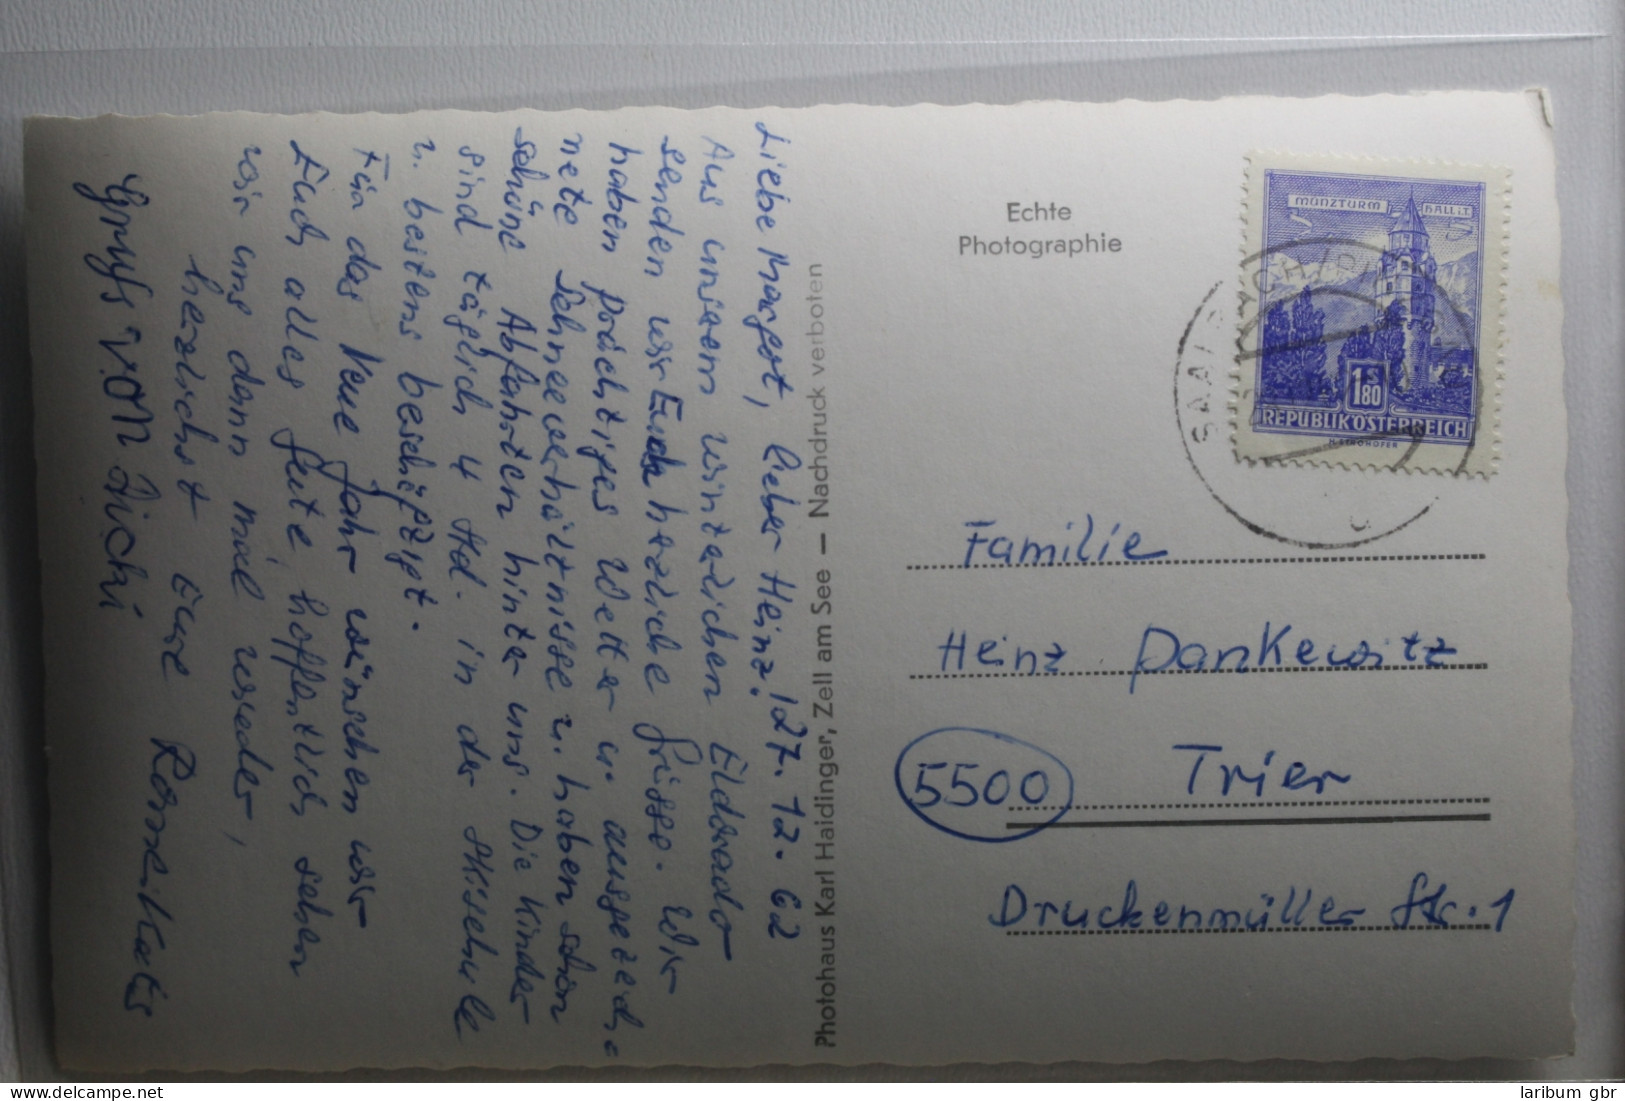 27.12.62
Liebe Margot, lieber Heinz!
Aus unserm winterlichen Eldorado
senden wir Euch herzliche Grüsse. Wir
haben prächtiges Wetter u. ausgezeich-
nete Schneeverhältnisse u. haben schon
schöne Abfahrten hinter uns. Die Kinder
sind täglich 4 Std. in der Skischule
u. bestens beschäftigt.
Für das Neue Jahr wünschen wir
Euch alles Gute, hoffentlich sehen
wir uns dann mal wieder,
herzlichst Eure
Gruß von
Photohaus Karl Haidinger, Zell am See — Nachdruck verboten
Echte
Photographie
MÜNZTURM HALL i.T.
S 5
1 S 80
REPUBLIK ÖSTERREICH
SAALBACH
Familie
Heinz Dankewitz
5500 Trier
Druckenmüller Str. 1
www.delcampe.net
laribum gbr